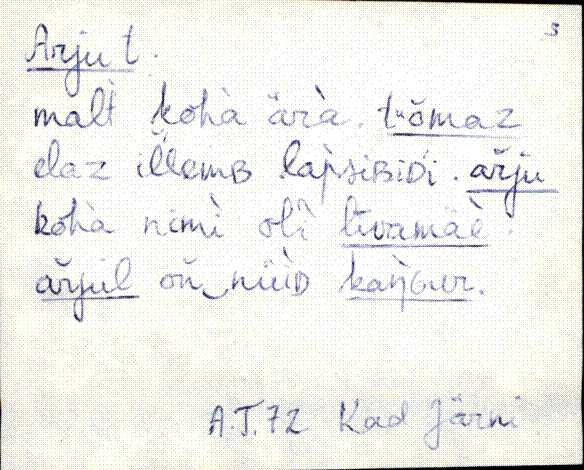 3
Arju t.
mal̀t kohà ärà. tʷŏmaz
elaz ĭĺlemʙ lap̀siʙiᴅi. ăr̆ju
kohà nimì olì līvamäè.
ăr̆jul oň‿nüìᴅ kaŋ̀ɢur.
A.T.72 Kad Järni